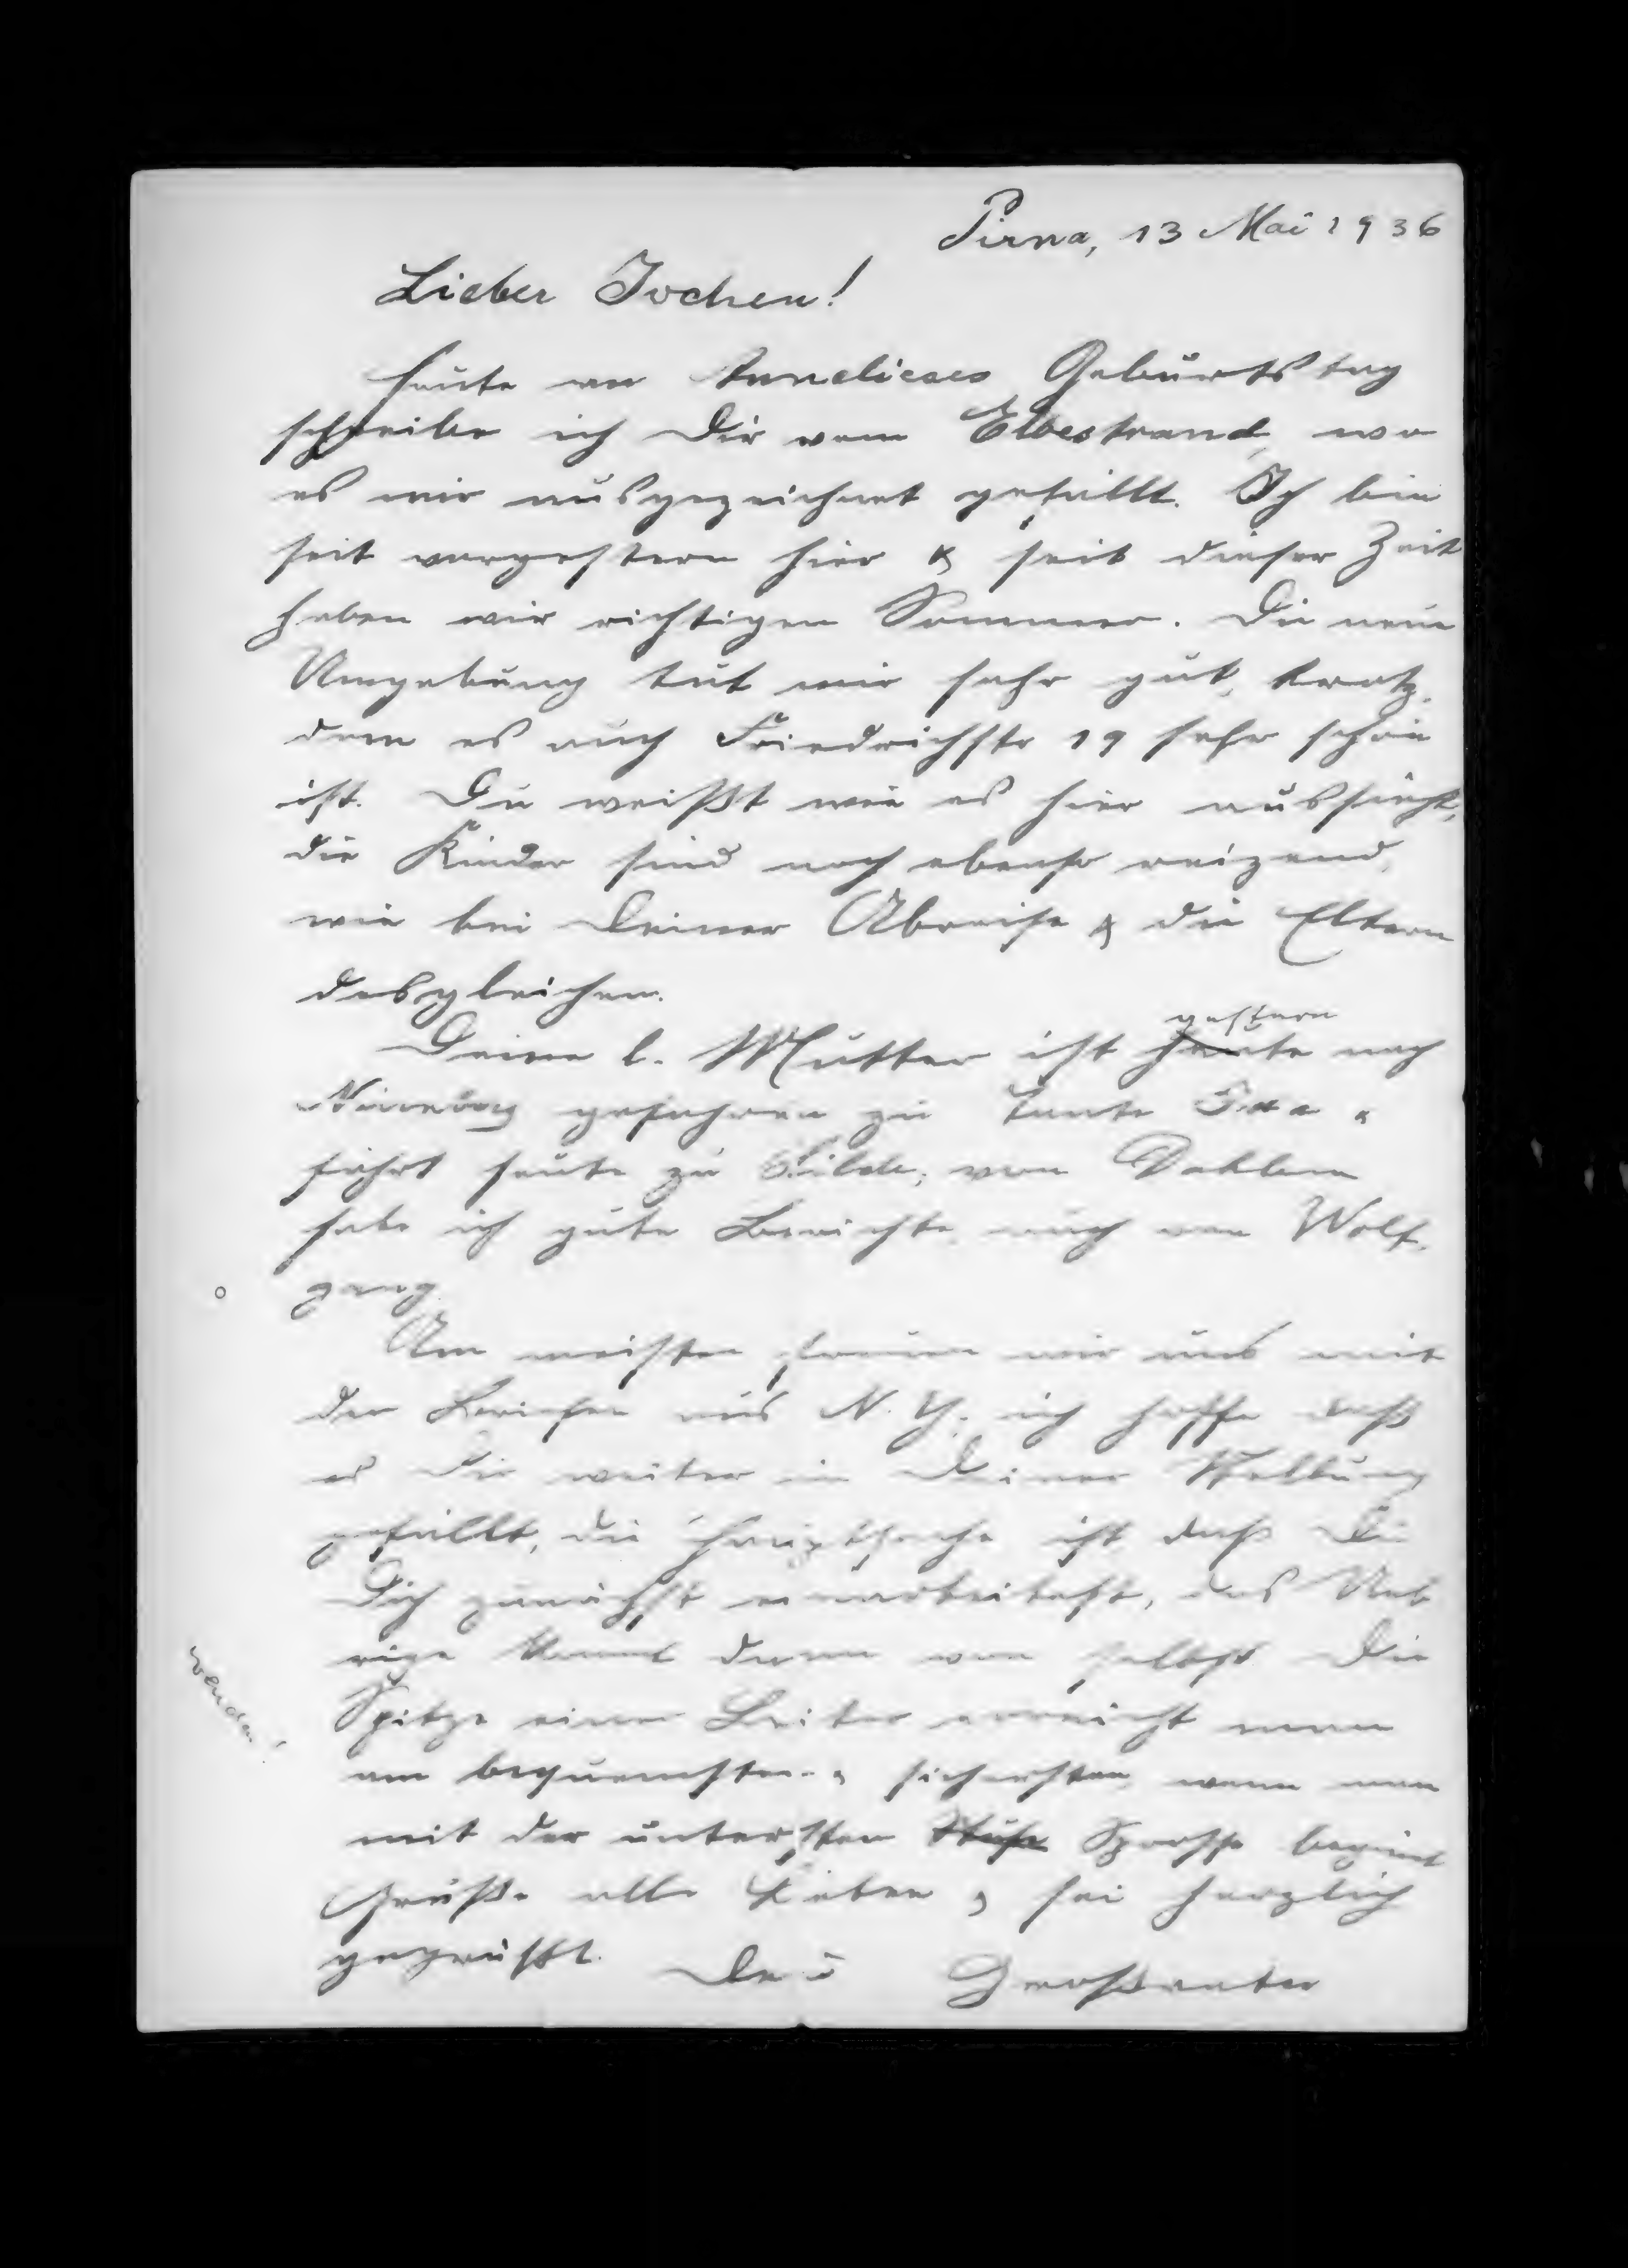 Pirna, 13 Mai 1936
Lieber Jochen!
heute an Annelieses Geburtstag
schreibe ich Dir vom Elbestrand, wo
es mir ausgezeichnet gefällt. Ich bin
seit vorgestern hier & seit dieser Zeit
haben wir richtigen Sommer. Die neue
Umgebung tut mir sehr gut, trotz-
dem es auch Friedrichstr 19 sehr schön
ist. Du weißt wie es hier aussieht,
die Kinder sind noch ebenso reizend,
wie bei Deiner Abreise & die Eltern
desgleichen.
gestern
Deine l. Mutter ist heute nach
gefahren zu Tante &
fährt heute zu Hilde; von Dahlem
habe ich gute Berichte auch von Wolf-
gang
Am meisten freuen wir uns mit
den Briefen aus N. Y. ich hoffe daß
es Dir weiter in Deiner Stellung
gefällt, die Hauptsache ist daß Du
Dich zunächst einarbeitest, das Ueb
rige kommt dann von selbst Die
Spitze einer Leiter erreicht man
am bequemsten & sichersten wenn man
mit der untersten Stufe Sprosse beginnt
Grüße alle Lieben & sei herzlich
gegrüßt. Dein Großvater
wenden!